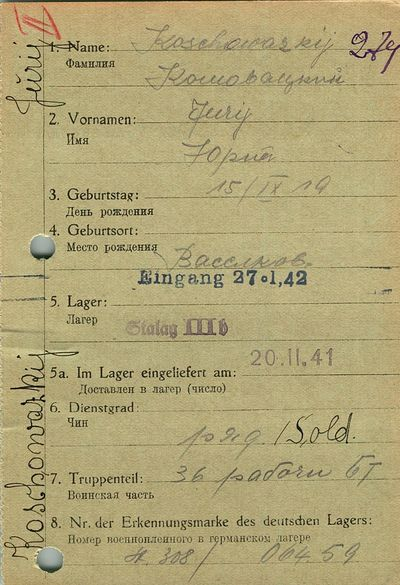 II
Jurij
1. Name: Koschowazkij
279
Фамилия
Кошовацкий
2. Vornamen: Jurij
Имя
Юрий
3. Geburtstag: 15/IX 19
День рождения
4. Geburtsort:
Место рождения
Васильков
Eingang 27.1.42
5. Lager:
Лагер
Stalag III b
20.11.41
5a. Im Lager eingeliefert am:
Доставлен в лагер (число)
6. Dienstgrad:
Чин
ряд / Sold.
7. Truppenteil: 36 рабочи БТ
Воинская часть
8. Nr. der Erkennungsmarke des deutschen Lagers:
Номер военнопленного в германском лагере
308 / 064.59
Koschowazkij